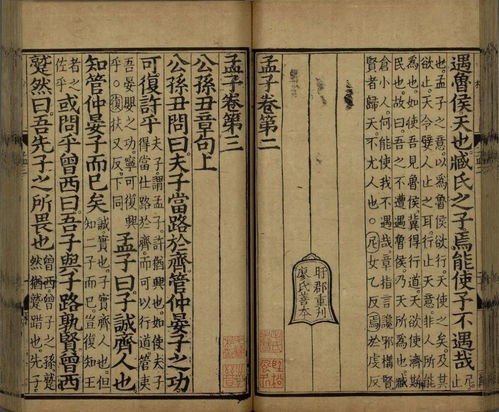 遇魯侯天也臧氏之子焉能使予不遇哉
也孟子之意以為魯侯欲行天使之矣及其
欲止天令嬖人止之耳行止天意非人所能
為也如使吾見魯侯冀得行道天欲使濟斯
民也故曰吾之不遭遇魯侯乃天所為也臧
倉小人何能使我不遇哉章指言讒邪構賢
賢者歸天不尤人也尼女乙反焉於虔反
孟子卷第二
盱郡重刊
廖氏善本
孟子卷第三
公孫丑章句上
公孫丑問曰夫子當路於齊管仲晏子之功
可復許乎夫子謂孟子許猶興也如使夫子得當仕路於齊而可以行道管夷
吾晏嬰之功寧可復興乎復扶又反下同孟子曰子誠齊人也
知管仲晏子而已矣誠實也子實齊人也但知二子而已豈復知王
者之佐乎或問乎曾西曰吾子與子路孰賢曾西
蹵然曰吾先子之所畏也曾西曾子之孫蹵然猶蹵踖也先子